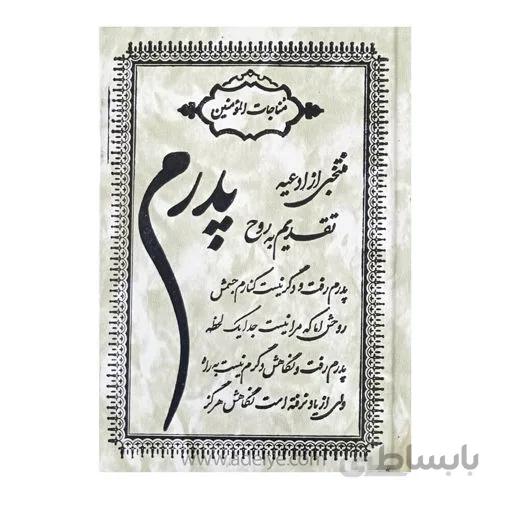 مناجات المؤمنین
منتخبی از ادعیه
تقدیم به روح
پدرم
پدرم رفت و دگر نیست کنارم جسمش
روحش اما که مرا نیست جدا یک لحظه
پدرم رفت و نگاهش دگرم نیست به راه
ولی از یاد نرفته است نگاهش هرگز
www.adeiye.com
بابساطی